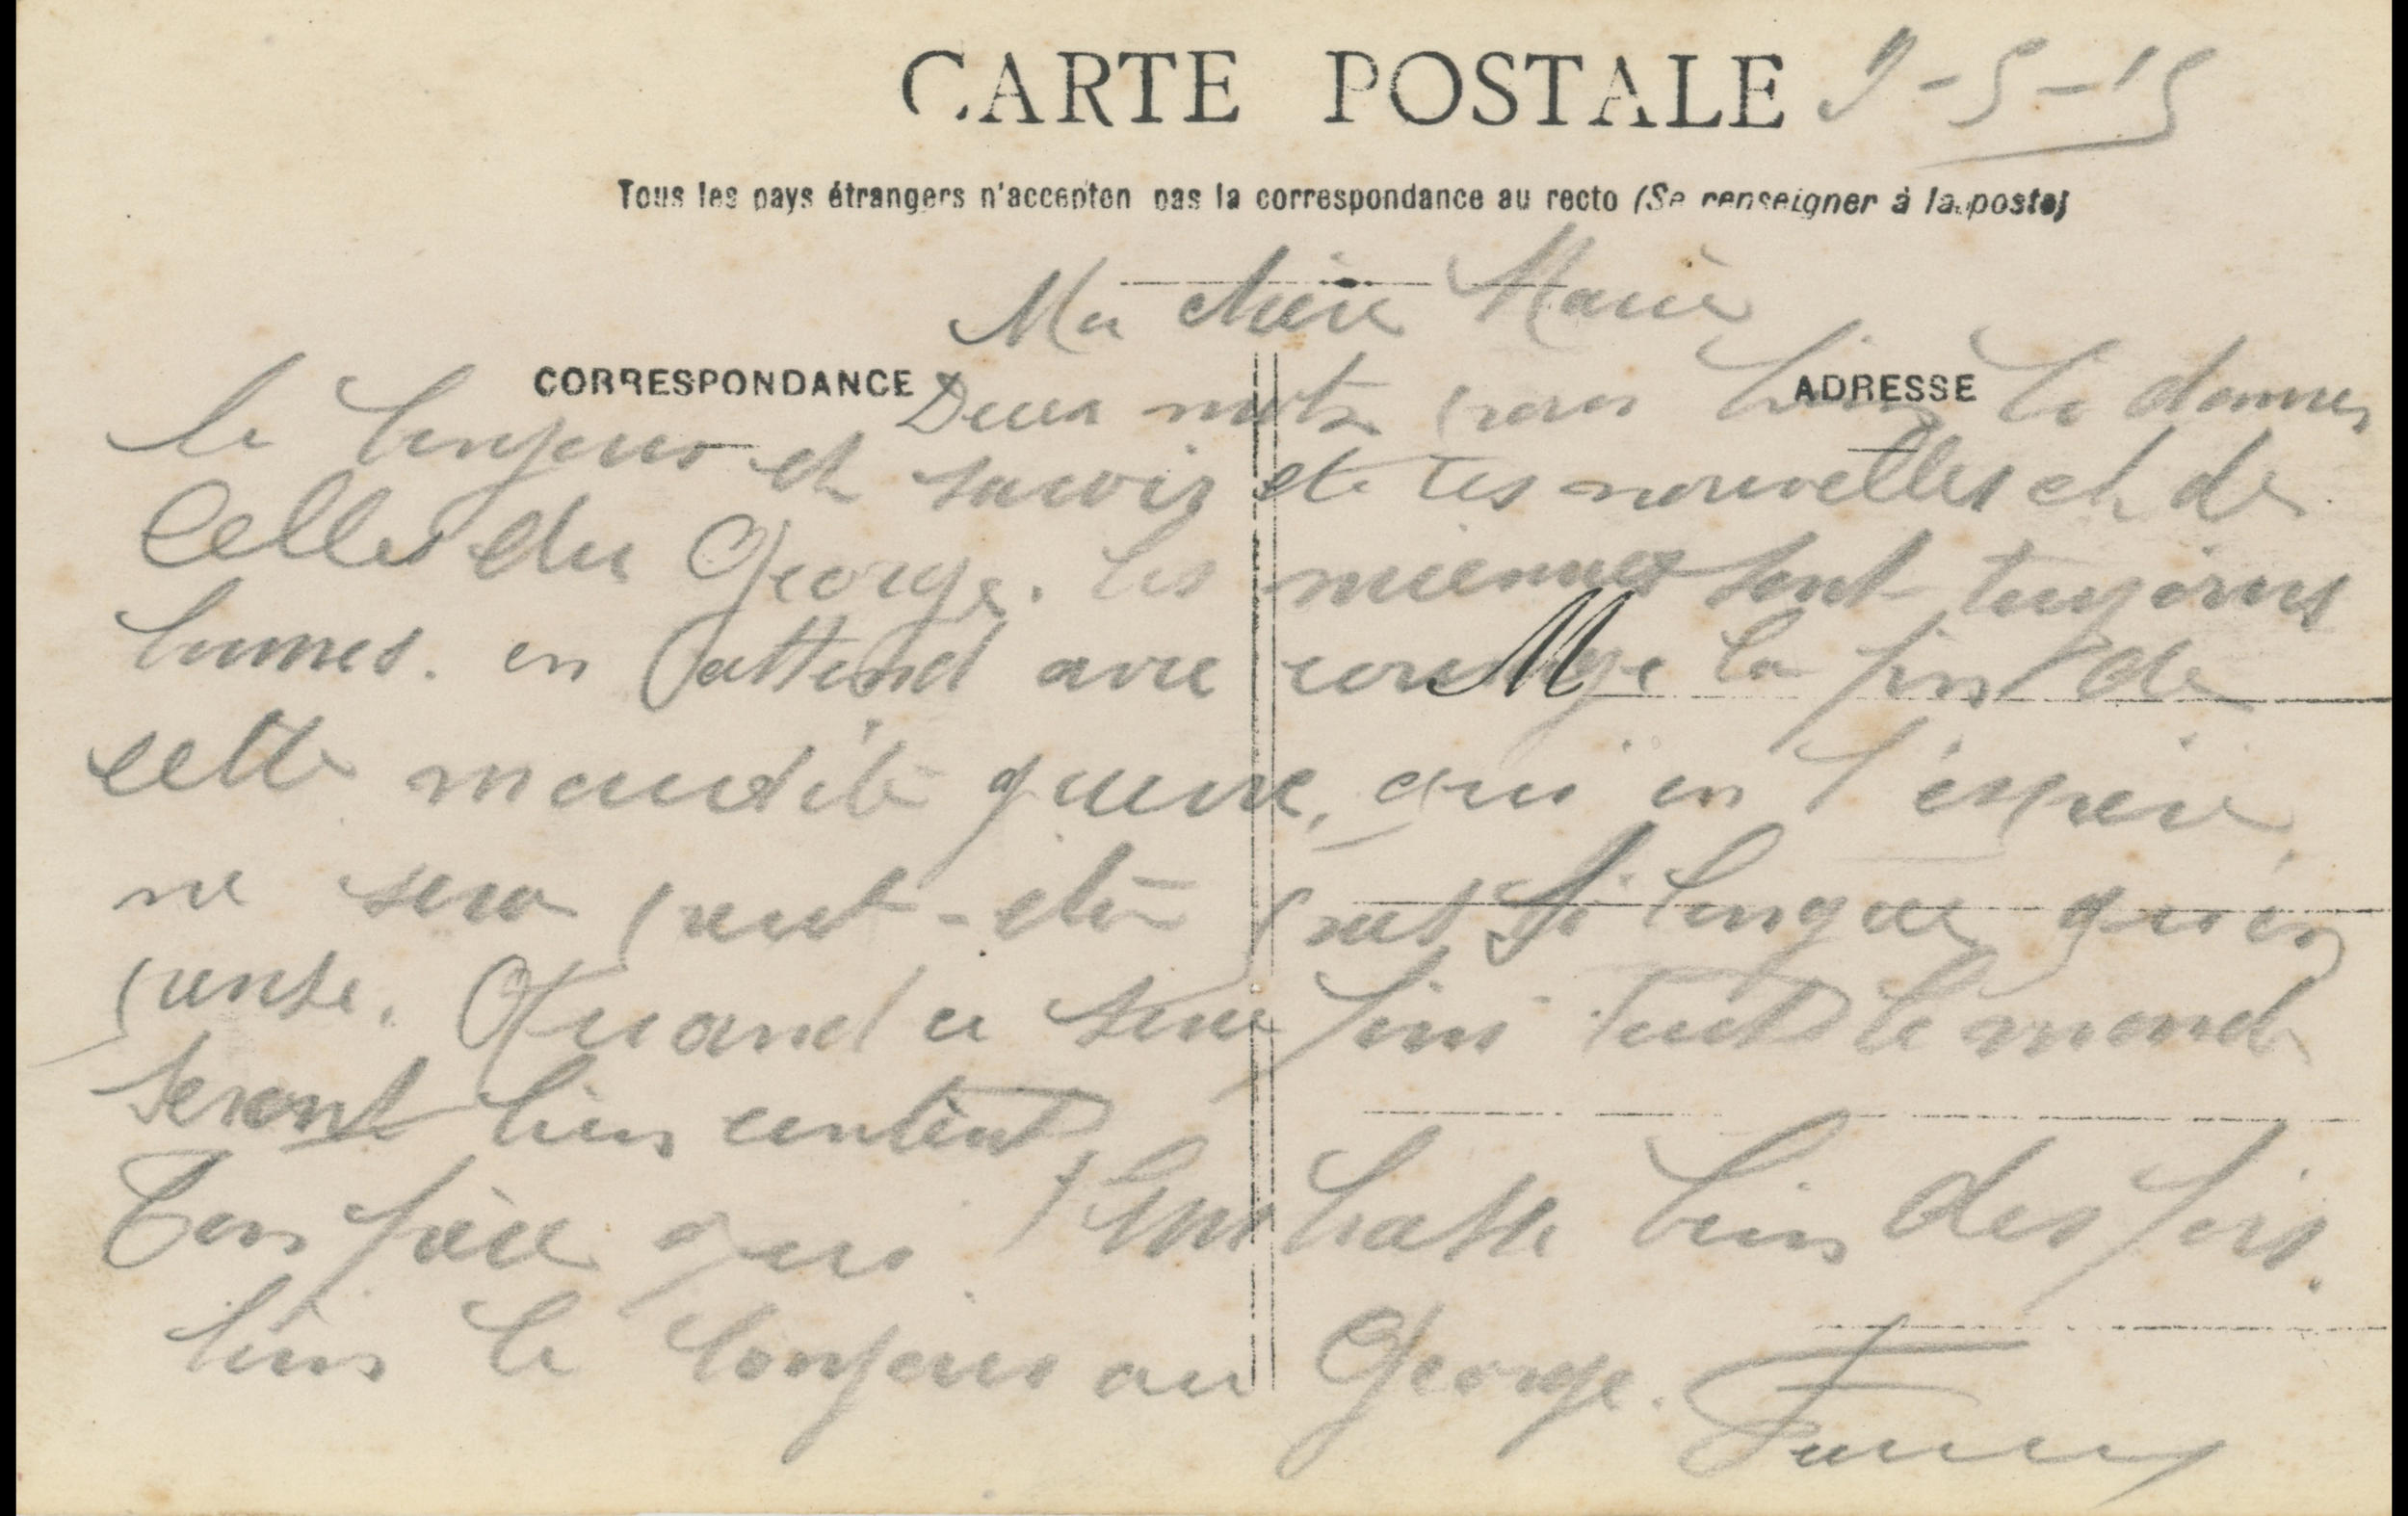 CARTE POSTALE 9-5-15
Tous les pays étrangers n'accepten pas la correspondance au recto (Se renseigner à la poste)
Ma chère Marie
CORRESPONDANCE
ADRESSE
Deux mots pour te donner
le bonjour et savoir de tes nouvelles et de
Celles du George. les miennes sont toujours
bonnes. en attend avec courage la fin de
M
cette maudite guerre, qui en l'espère,
ne sera peut-être pas si longue qu'on
pense. Quand ce sera fini tout le monde
seront bien content
Ton frère qui t'Embrasse bien des fois.
bien le bonjour au George.